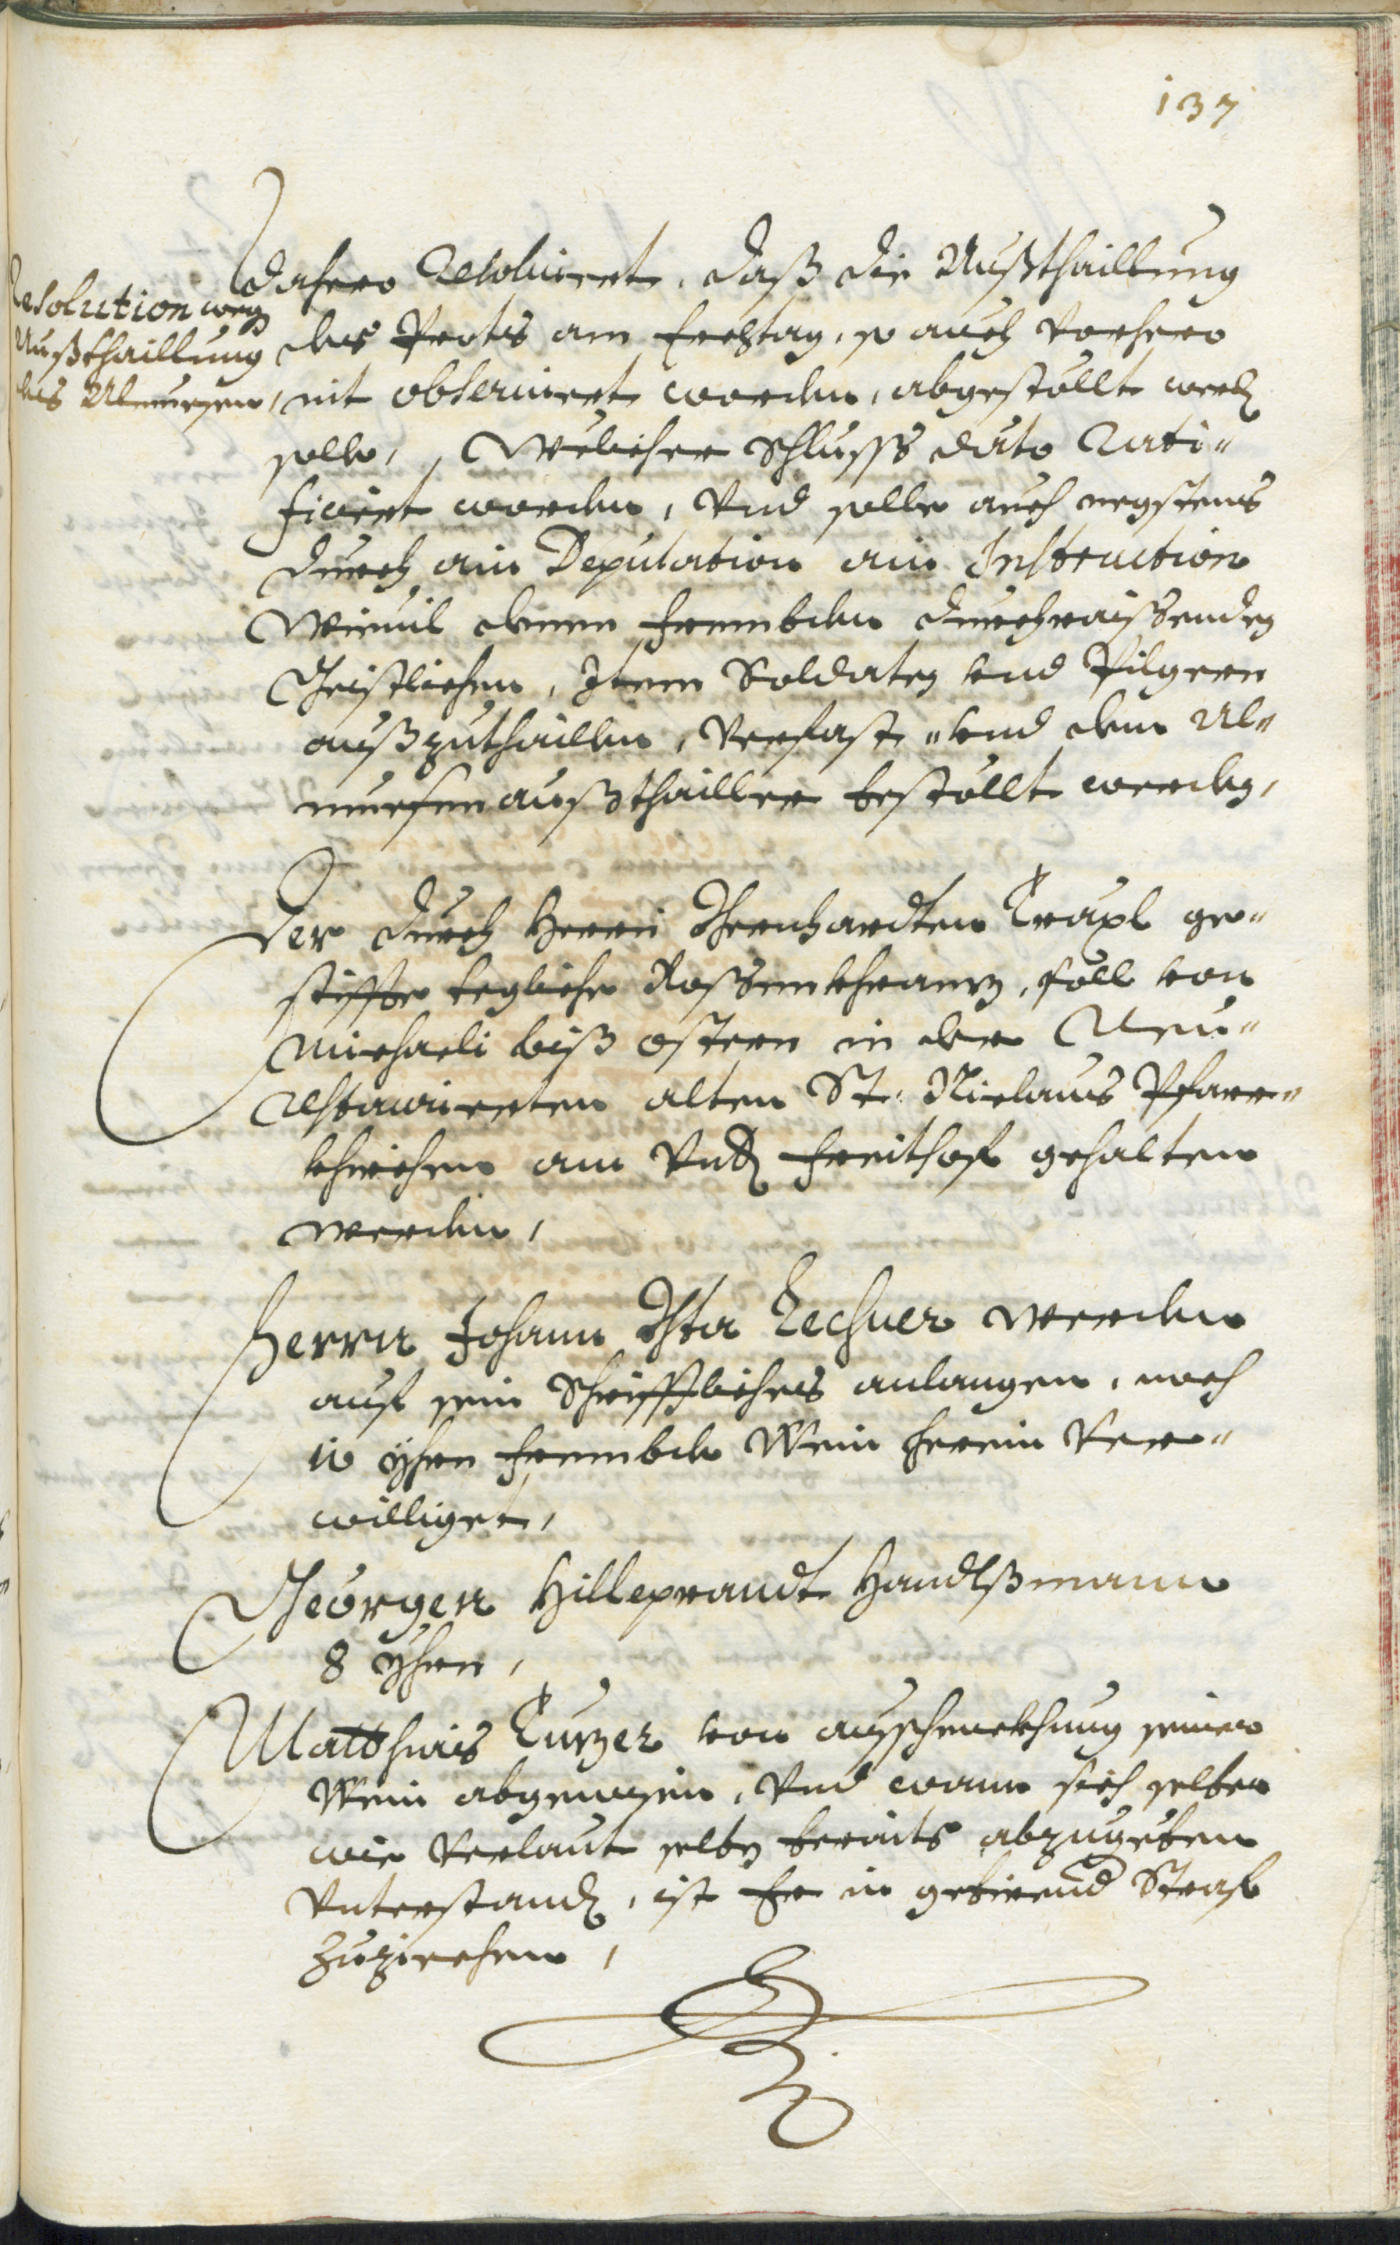 137
Resolution weg
Außthaillung
des Almuesen,
dahero Resoluiert, daß die Außthaillung
des Prots am Freÿtag, so auch vorhero
nit obseruiert worden, abgestöllt werdn
solle, Welicher Schlusss dato Rati-
ficiert worden, Vnd solle auch negstens
durch ain Deputation ain Instruction
Wieuil denen frembden durchraisenden
Geistlichen, Item Soldaten vnd Pilgern
außzuthaillen, Verfast- vnd dem Al-
muesenaußthailler bestöllt werden,
Der durch Herrn Bernhardten Träxl ge-
stiffte tegliche Rossenkhrantz, soll von
Michaeli biß ostern in der Neu-
restaurierten alten St: Nicolaus Pfarr-
khirchen am Vndn Freithof gehalten
werden,
Herrn Johann Bta Lechner werden
auf sein Schrifftliches anlangen, noch
10 Yhrn frembde Wein herein Ver-
williget,
Georgen Hilleprandt Handlßmann
8 Yhrn,
Matthias Turzer von ausschenckhung seiner
Wein abgewisen, Vnd wann sich selber
wie Verlaut selbe bereits abzugeben
Vnterstandn, ist Er in gebirend Straf
zuziechen,